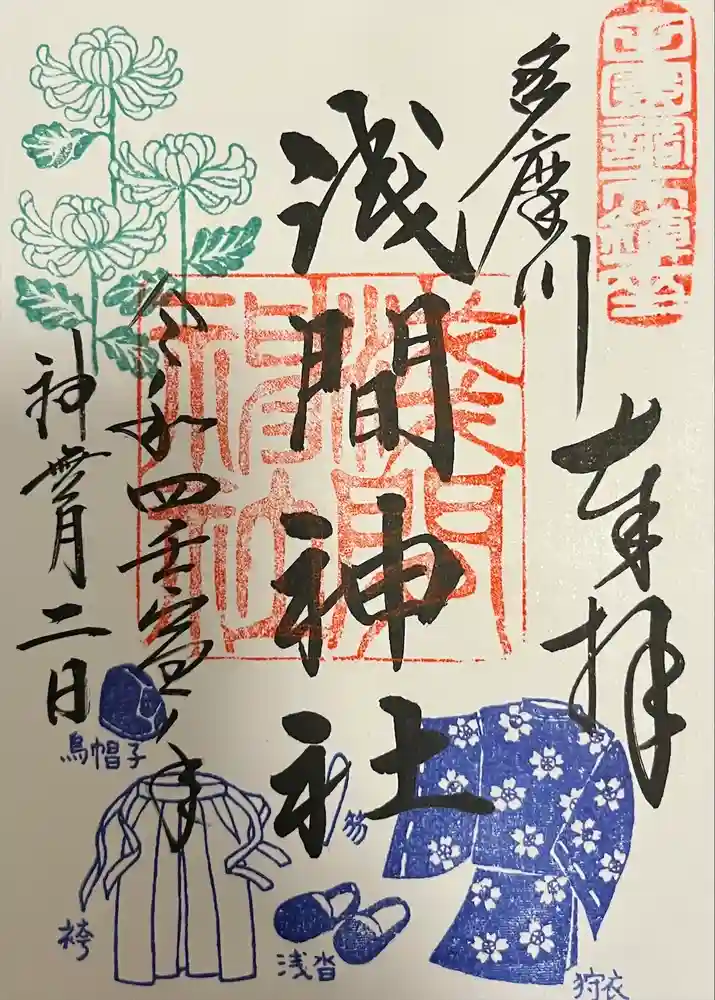 奉拝
多摩川
浅間神社
令和四壬寅年
神無月二日
浅間神社
烏帽子
袴
笏
浅沓
狩衣